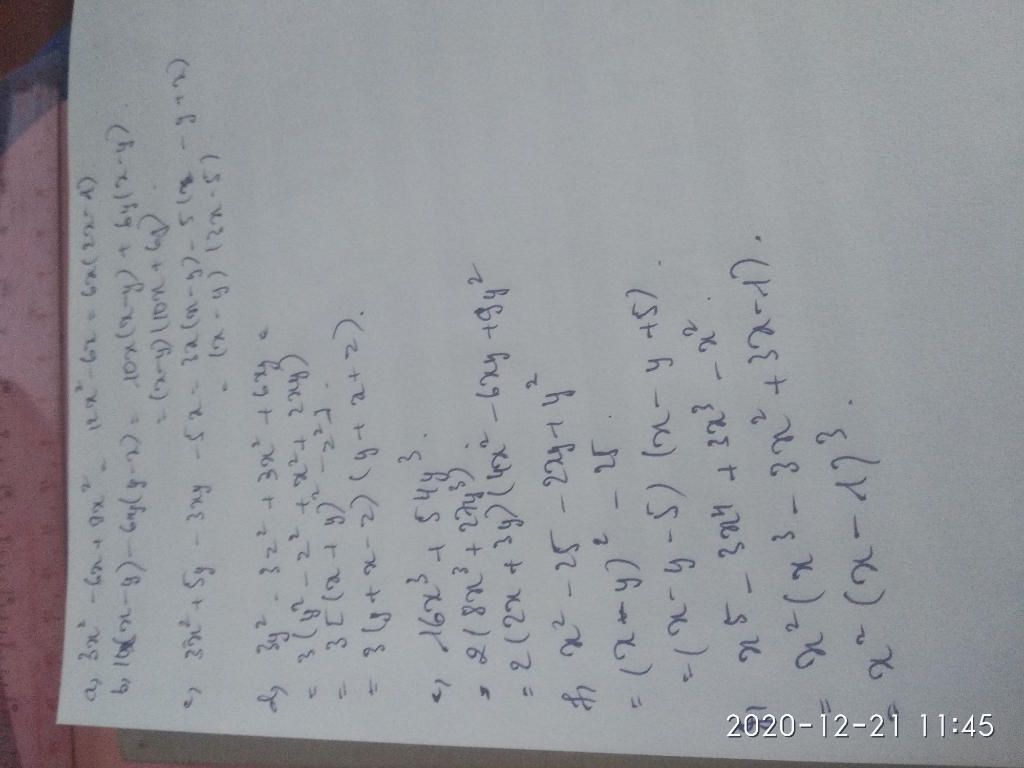 a, 3x² - 6x + 9x² = 12x² - 6x = 6x(2x-1)
b, 10x(x-y) - 6y(y-x) = 10x(x-y) + 6y(x-y)
= (x-y)(10x + 6y)
c, 3x² + 5y - 3xy - 5x = 3x(x-y) - 5(x - y + x)
= (x-y)(2x-5)
d, 3y² - 3z² + 3x² + 6xy =
= 3(y² - z² + x² + 2xy)
= 3[(x+y)² - z²]
= 3(y+x-z)(y+x+z).
e, 16x³ + 54y³.
= 2(8x³ + 27y³)
= 2(2x+3y)(4x² - 6xy + 9y²
f, x² - 25 - 2xy + y²
= (x-y)² - 25
= (x-y-5)(x-y+5).
x⁵ - 3x⁴ + 3x³ - x²
= x²(x³ - 3x² + 3x - 1).
= x²(x-1)³.
2020-12-21 11:45